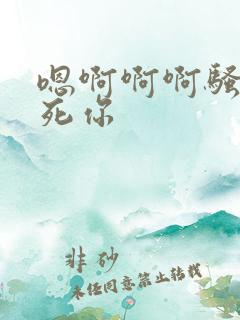 嗯啊啊啊骚
死你
非砂
未经同意禁止转载